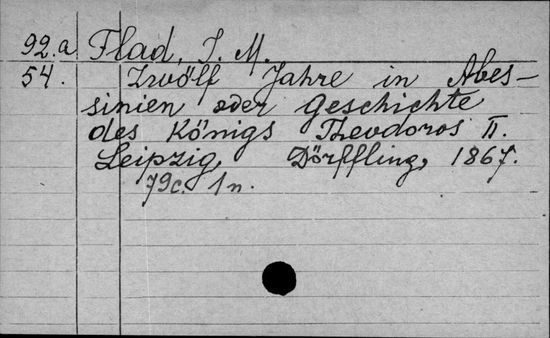 92.a Flad, J. M.
54. Zwölf Jahre in Abes-
sinien oder Geschichte
des Königs Theodoros II.
Leipzig, Dörffling, 1867.
79c. 1n.